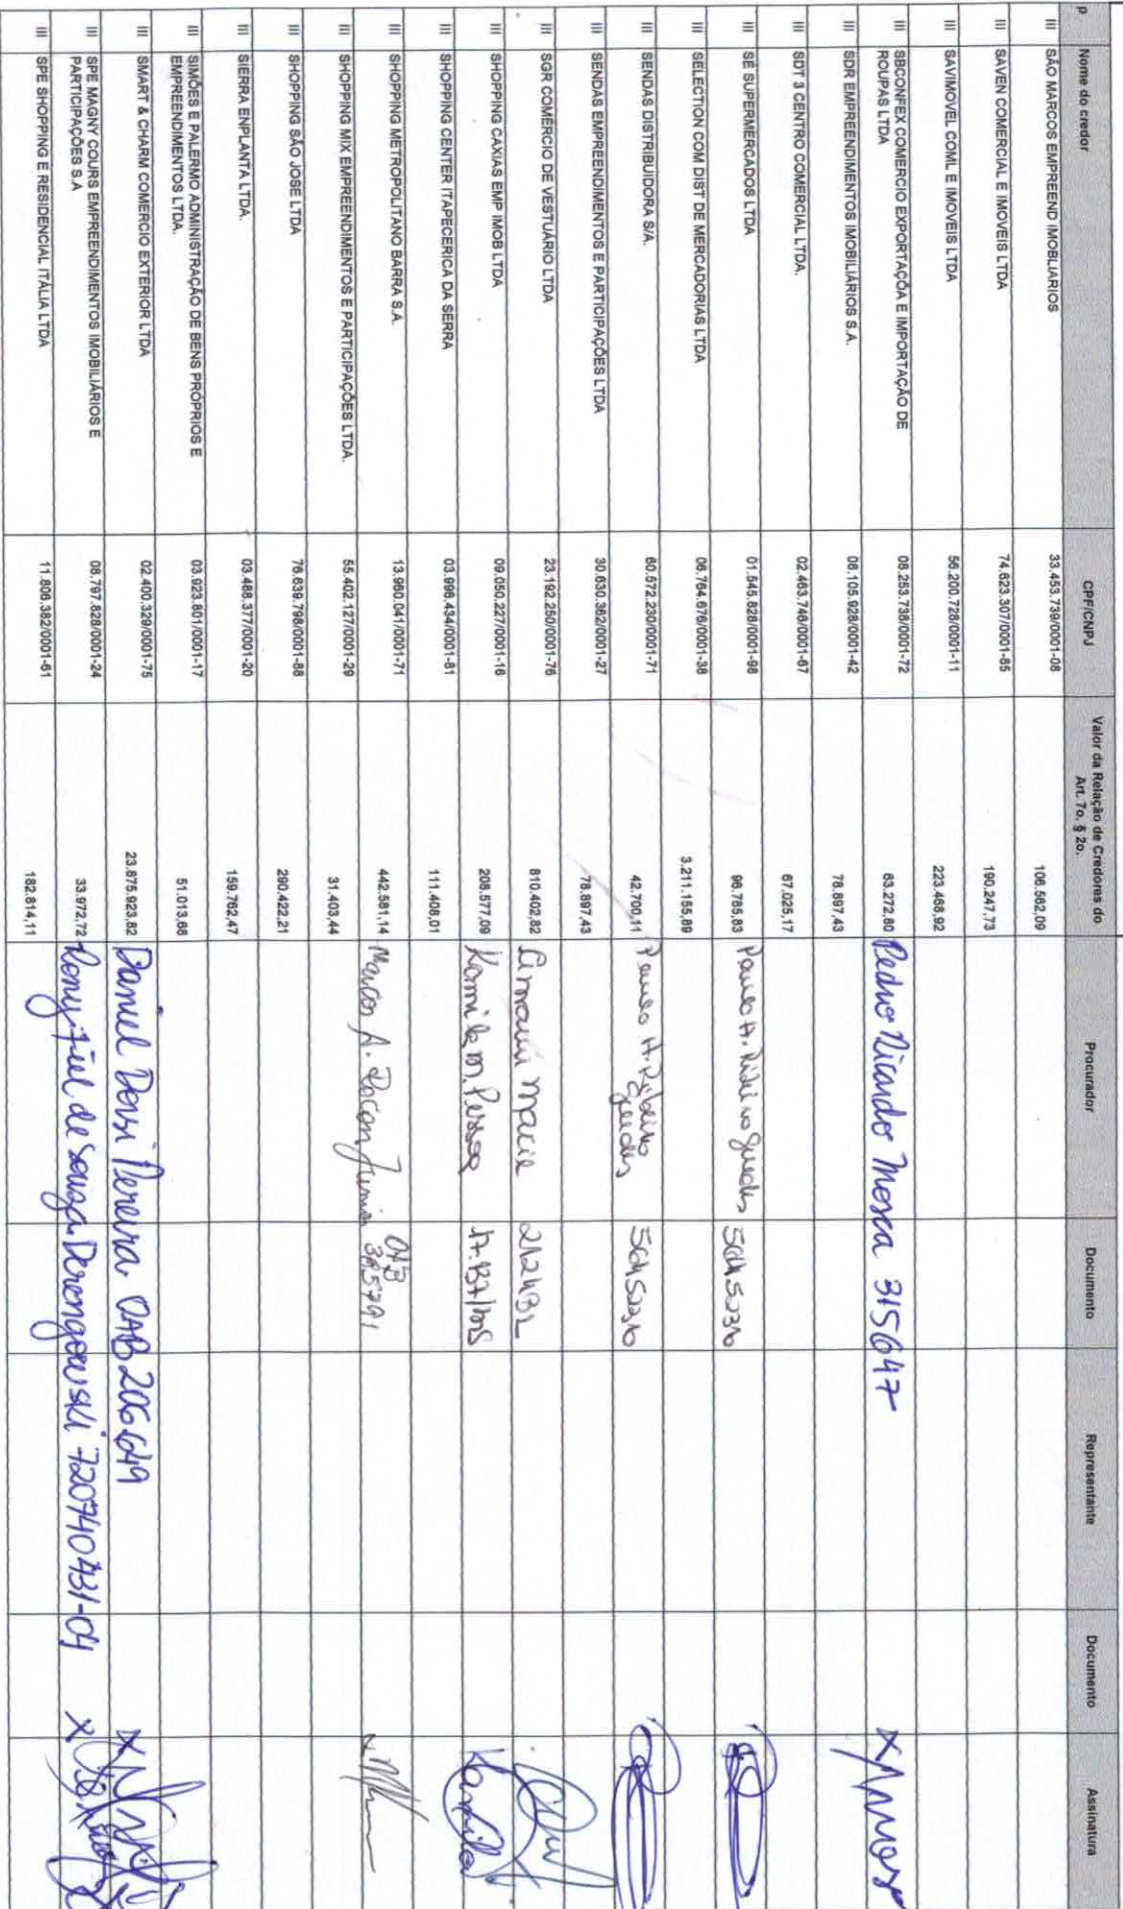 p Nome do credor CPF/CNPJ Valor da Relação de Credores do Art. 7o. § 2o. Procurador Documento Representante Documento Assinatura
III SÃO MARCOS EMPREEND IMOBLIARIOS 33.453.739/0001-08 106.562,09
III SAVEN COMERCIAL E IMOVEIS LTDA 74.623.307/0001-85 190.247,73
III SAVIMOVEL COML E IMOVEIS LTDA 56.200.728/0001-11 223.468,92
III SBCONFEX COMERCIO EXPORTAÇÕA E IMPORTAÇÃO DE ROUPAS LTDA 08.253.738/0001-72 63.272,80 Pedro Ricardo Mosca 315647
III SDR EMPREENDIMENTOS IMOBILIÁRIOS S.A. 08.105.928/0001-42 78.897,43
III SDT 3 CENTRO COMERCIAL LTDA. 02.463.746/0001-67 67.025,17
III SÉ SUPERMERCADOS LTDA 01.545.828/0001-98 96.785,83
III SELECTION COM DIST DE MERCADORIAS LTDA 06.764.676/0001-38 3.211.155,89
III SENDAS DISTRIBUIDORA S/A. 60.572.230/0001-71 42.700,11
III SENDAS EMPREENDIMENTOS E PARTICIPAÇÕES LTDA 30.630.362/0001-27 78.897,43
III SGR COMÉRCIO DE VESTUÁRIO LTDA 23.192.250/0001-76 810.402,82 212432
III SHOPPING CAXIAS EMP IMOB LTDA 09.050.227/0001-16 208.577,09 Kamila M. Pessoa 17.137/MS Kamila
III SHOPPING CENTER ITAPECERICA DA SERRA 03.996.434/0001-81 111.408,01
III SHOPPING METROPOLITANO BARRA S.A. 13.960.041/0001-71 442.581,14 Marcos A. Junior OAB
III SHOPPING MIX EMPREENDIMENTOS E PARTICIPAÇÕES LTDA. 55.402.127/0001-29 31.403,44
III SHOPPING SÃO JOSE LTDA 76.639.798/0001-88 290.422,21
III SIERRA ENPLANTA LTDA. 03.488.377/0001-20 159.762,47
III SIMÕES E PALERMO ADMINISTRAÇÃO DE BENS PRÓPRIOS E EMPREENDIMENTOS LTDA. 03.923.801/0001-17 51.013,66
III SMART & CHARM COMERCIO EXTERIOR LTDA 02.400.329/0001-75 23.875.923,82 Daniel Pereira OAB 206.649
III SPE MAGNY COURS EMPREENDIMENTOS IMOBILIÁRIOS E PARTICIPAÇÕES S.A 08.797.828/0001-24 33.972,72 de Souza Derengowski 720740431-04
III SPE SHOPPING E RESIDENCIAL ITÁLIA LTDA 11.806.382/0001-61 182.814,11